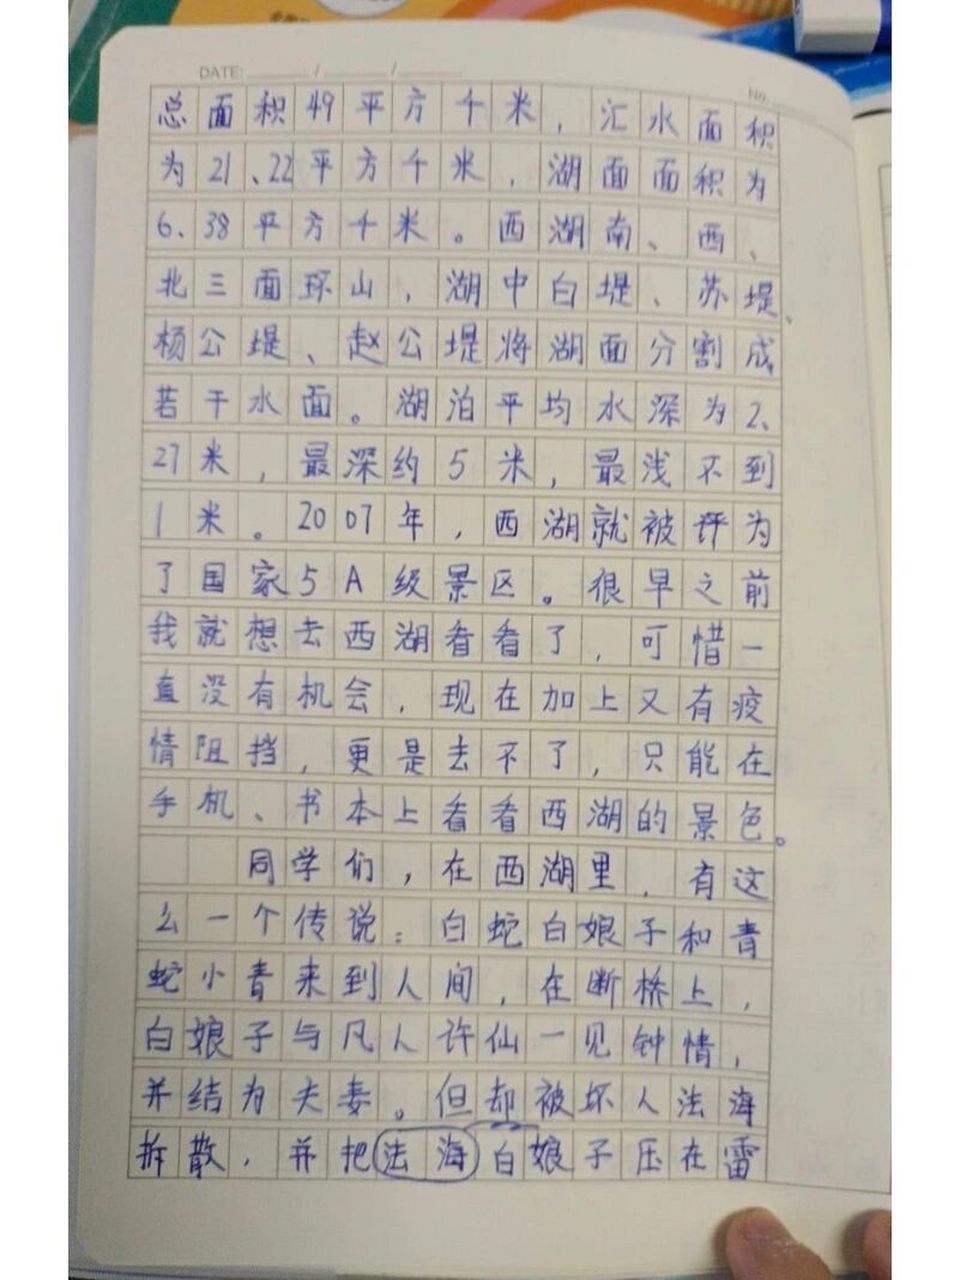 DATE: / /
No.
总面积49平方千米，汇水面积
为21、22平方千米，湖面面积为
6、38平方千米。西湖南、西、
北三面环山，湖中白堤、苏堤、
杨公堤、赵公堤将湖面分割成
若干水面。湖泊平均水深为2、
27米，最深约5米，最浅不到
1米。2007年，西湖就被评为
了国家5A级景区。很早之前
我就想去西湖看看了，可惜一
直没有机会，现在加上又有疫
情阻挡，更是去不了，只能在
手机、书本上看看西湖的景色。
同学们，在西湖里，有这
么一个传说：白蛇白娘子和青
蛇小青来到人间，在断桥上，
白娘子与凡人许仙一见钟情，
并结为夫妻。但却被坏人法海
拆散，并把法海白娘子压在雷